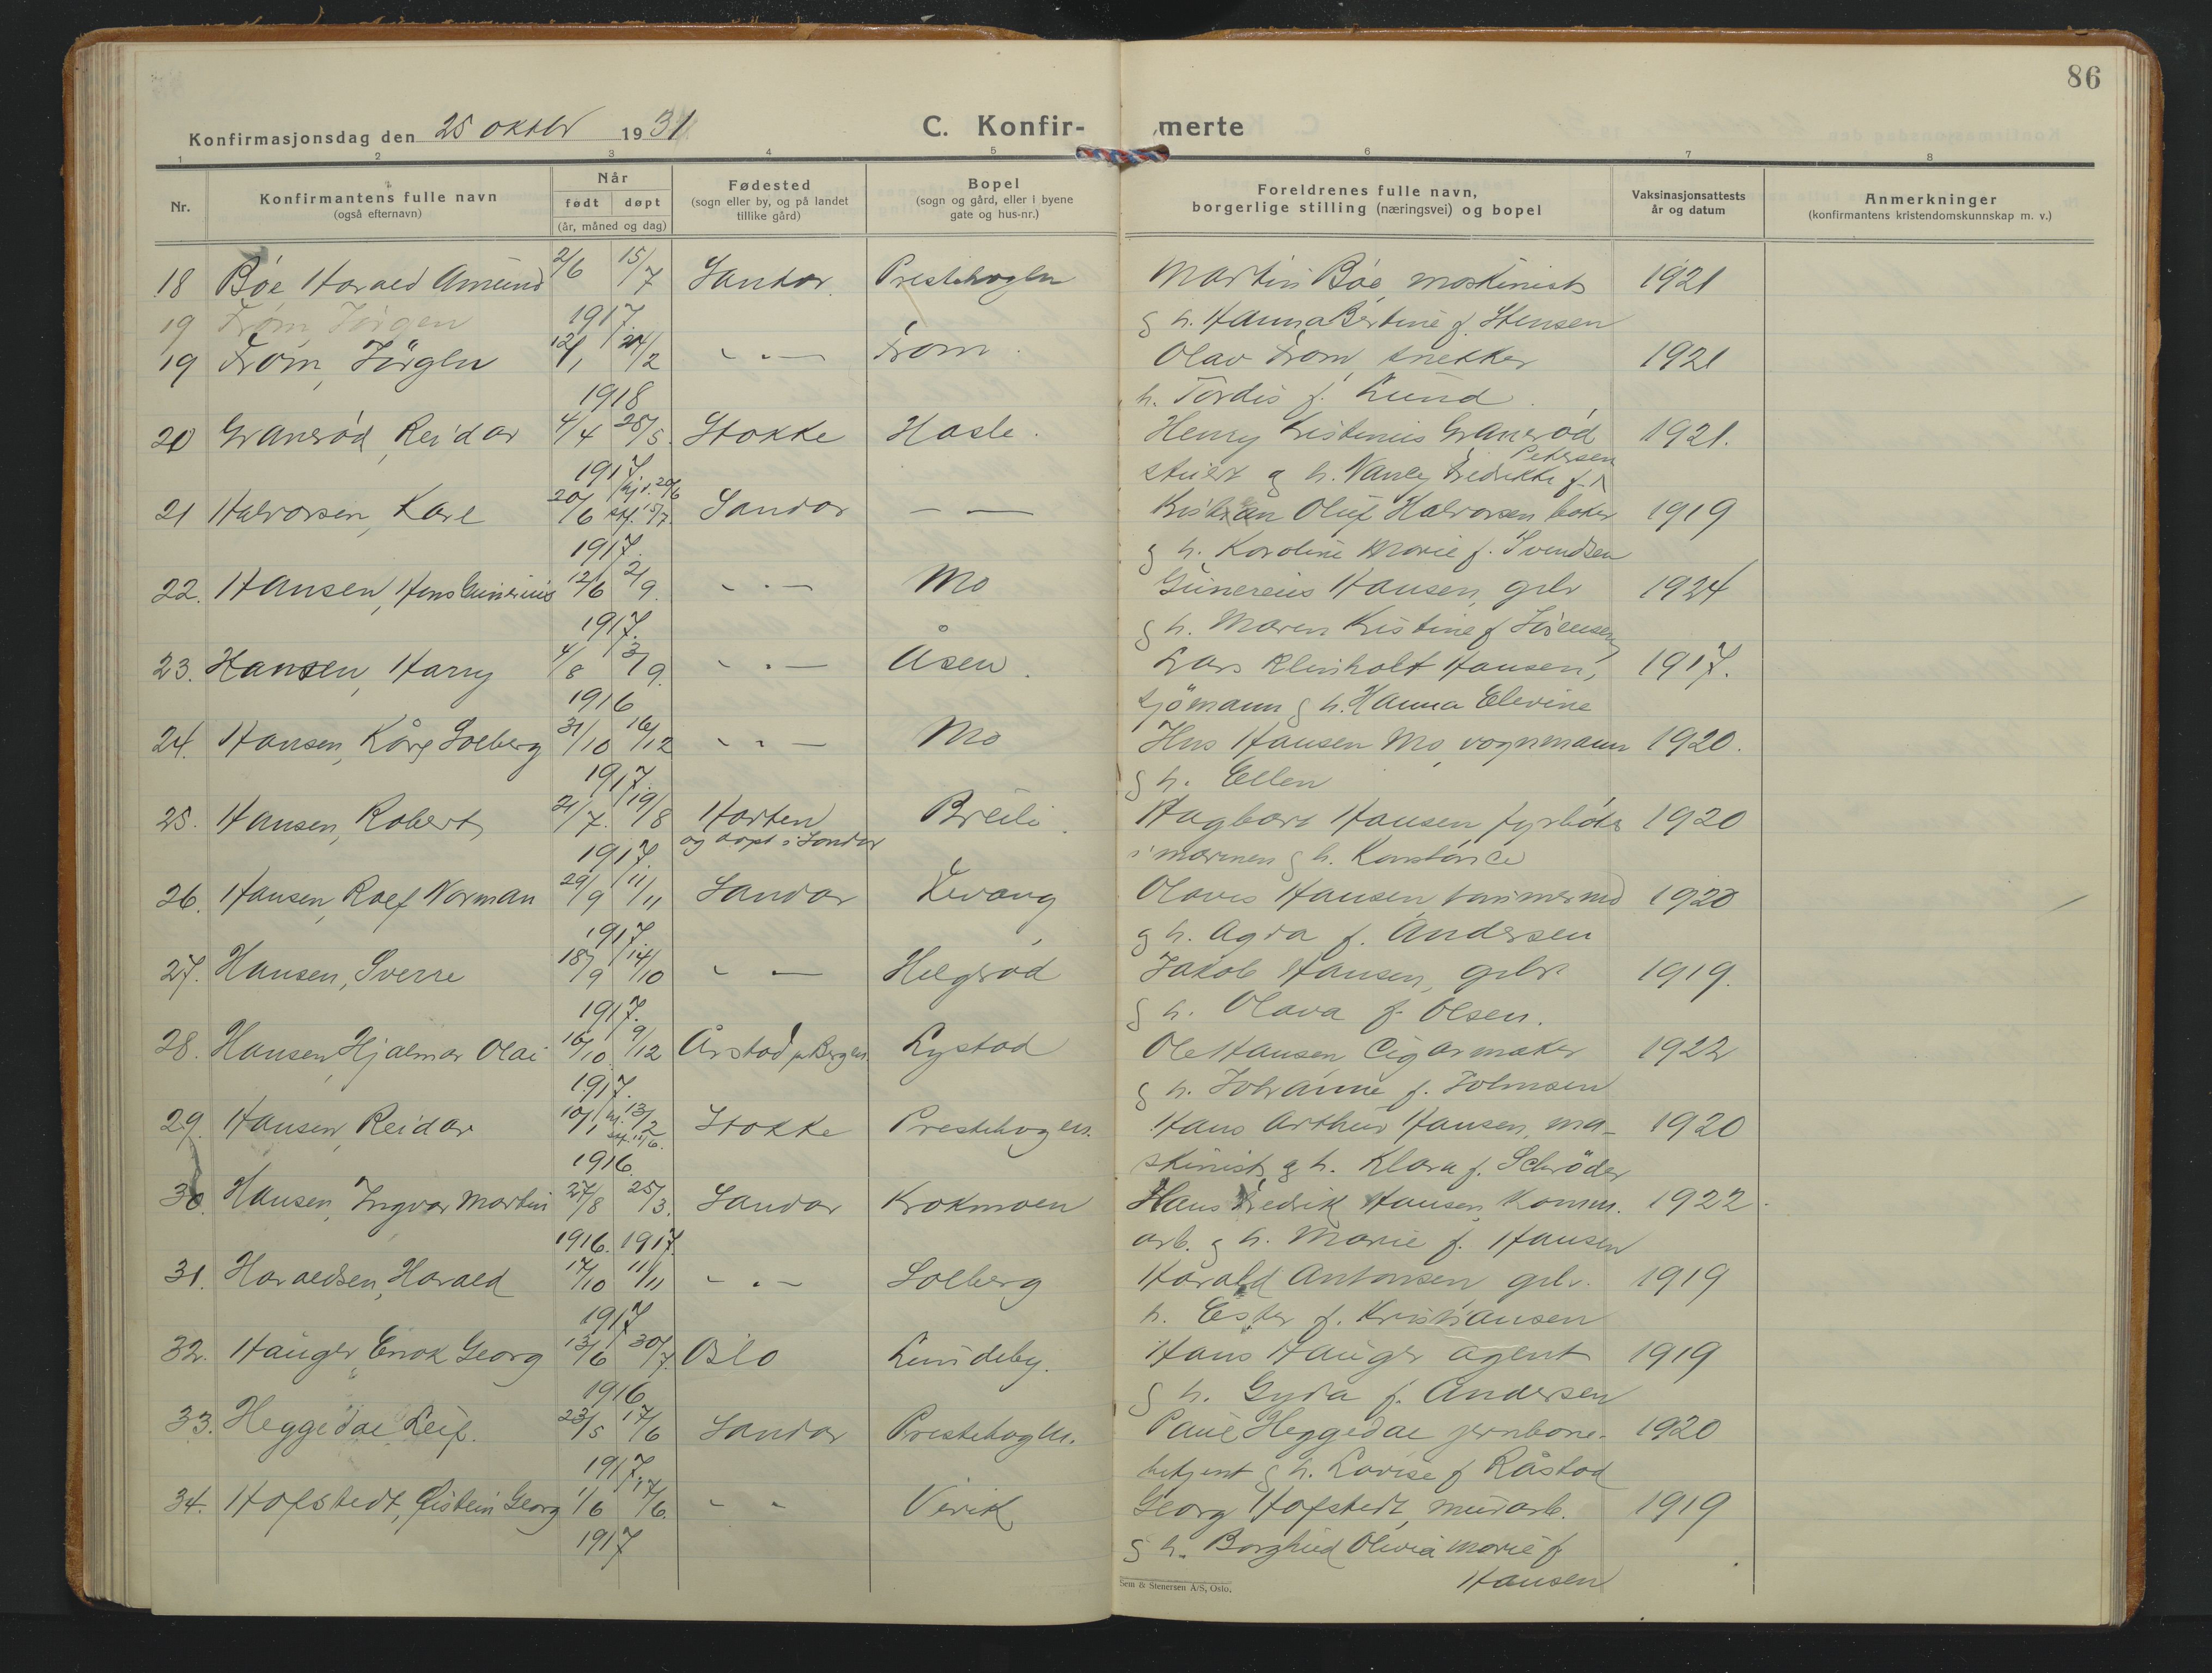 86
Konfirmasjonsdag den 25 oktbr 1931
C. Konfir- merte
1 2 3 4 5 6 7 8
Nr.
Konfirmantens fulle navn
(også efternavn)
Når
født døpt
(år, måned og dag)
Fødested
(sogn eller by, og på landet
tillike gård)
Bopel
(sogn og gård, eller i byene
gate og hus-nr.)
Foreldrenes fulle navn,
borgerlige stilling (næringsvei) og bopel
Vaksinasjonsattests
år og datum
Anmerkninger
(konfirmantens kristendomskunnskap m. v.)
18 Bøe Harald Amund 2/6 15/7 Sandar Prestehagen Martin Bøe maskinist 1921
19 From, Jörgen 1917. g h. Hanna Bertine f. Stensen
19 From, Jörgen 12/1 24/2 - . - From. Olav From, snekker 1921
1918 h. Tordis f. Lund.
20 Granerød, Reidar 4/4 28/5 Stokke Hasle. Henry Kristinius Granerød 1921.
1917. stuert g h. Nancy Fredrikke f. Petersen
21 Halvorsen, Kare 20/6 hj.d. 20/6 stf. 15/7 Sandar - - Kristian Oluf Halvorsen baker 1919
1917. g h. Karoline Marie f. Svendsen
22. Hansen, Hans Gunerius 12/6 2/9. - . - Mo Gunerius Hansen, gbr 1924
1917. g h. Maren Kristine f. Jörensen
23. Hansen, Harry 4/8 3/9. - . - Åsen. Lars Klinholt Hansen, 1917.
1916 sjömann g h. Hanna Elevine
24. Hansen, Kåre Solberg 31/10 16/12 - . - Mo Hans Hansen Mo, vognmann 1920.
1917. g h. Ellen
25. Hansen, Robert 21/7. 19/8 Horten Breili. Hagbart Hansen fyrbøter 1920
og døpt i Sandar
1917. i marinen g h. Konstance
26. Hansen, Rolf Norman 29/9 11/11 Sandar Kvang Olaves Hansen, tømmermd 1920
1917. g h. Agda f. Andersen
27. Hansen, Sverre 18/9 14/10 - - Helgerød Jakob Hansen, gbr. 1919.
1917. g h. Olava f. Olsen.
28. Hansen, Hjalmar Olai 16/10 9/12 Årstad pr Bergen Lystad Ole Hansen Cigarmaker 1922
1917. g h. Johanne f. Johnsen
29. Hansen, Reidar 10/1 hj. 13/2 stf. 11/6. Stokke Prestehagen. Hans Arthur Hansen, ma- 1920
1916. skinist, g h. Klara f. Schrøder
30. Hansen, Ingvar Martin 27/8 25/3. Sandar Krokmoen Hans Fredrik Hansen, komm. 1922
1916. 1917. arb. g h. Marie f. Hansen
31. Haraldsen, Harald 17/10 11/11 - . - Solberg Harald Antonsen, gbr. 1919
1917 h. Ester f. Kristiansen
32. Hauger, Enok Georg 13/6 30/7. Oslo Lundeby. Hans Hauger agent 1919
1916 g h. Gyda f. Andersen
33. Heggedal Leif. 23/5 17/6 Sandar Prestehagen. Paul Heggedal jernbane- 1920
1917. betjent g h. Lovise f. Råstad
34. Hofstedt, Øistein Georg 1/6 17/6. - - Virik Georg Hofstedt, murarb. 1919
1917 g h. Borghild Olivia Marie f
Hansen
Sem & Stenersen A/S, Oslo.